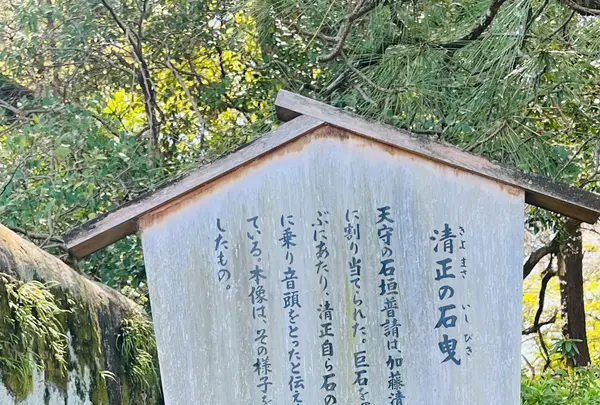 清正の石曳
きよまさ いしびき
天守の石垣普請は、加藤清
に割り当てられた。巨石を
ぶにあたり、清正自ら石の
に乗り音頭をとったと伝え
ている。本像は、その様子を
したもの。